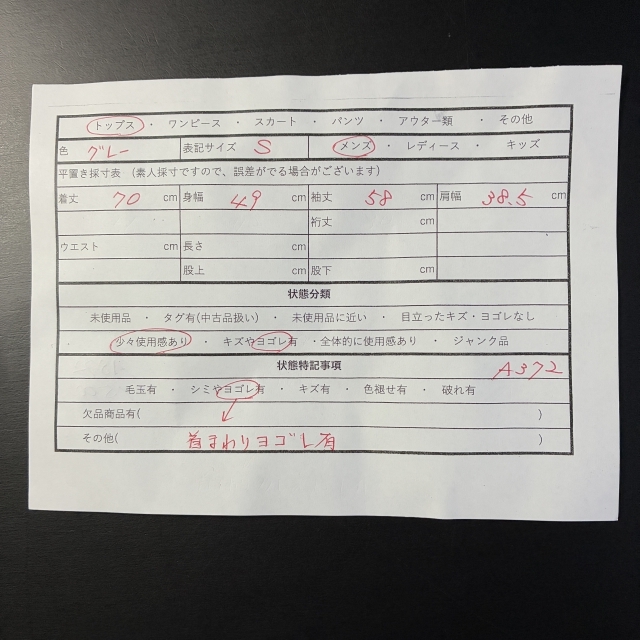 トップス ・ ワンピース ・ スカート ・ パンツ ・ アウター類 ・ その他
色 グレー 表記サイズ S メンズ ・ レディース ・ キッズ
平置き採寸表 (素人採寸ですので、誤差がでる場合がございます)
着丈 70 cm 身幅 49 cm 袖丈 58 cm 肩幅 38.5 cm
裄丈 cm
ウエスト cm 長さ cm
股上 cm 股下 cm
状態分類
未使用品 ・ タグ有(中古品扱い) ・ 未使用品に近い ・ 目立ったキズ・ヨゴレなし
少々使用感あり ・ キズやヨゴレ有 ・全体的に使用感あり ・ ジャンク品
状態特記事項 A372
毛玉有 ・ シミやヨゴレ有 ・ キズ有 ・ 色褪せ有 ・ 破れ有
欠品商品有( )
その他( 首まわりヨゴレ有 )